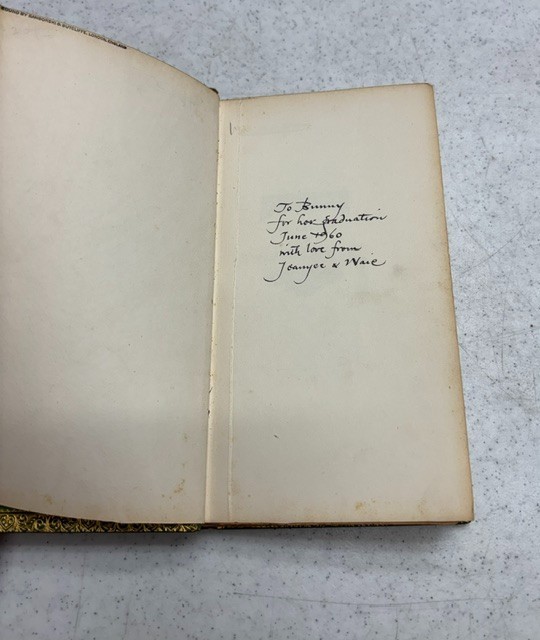 To Bunny
for her graduation
June 1960
with love from
Jeanyee &